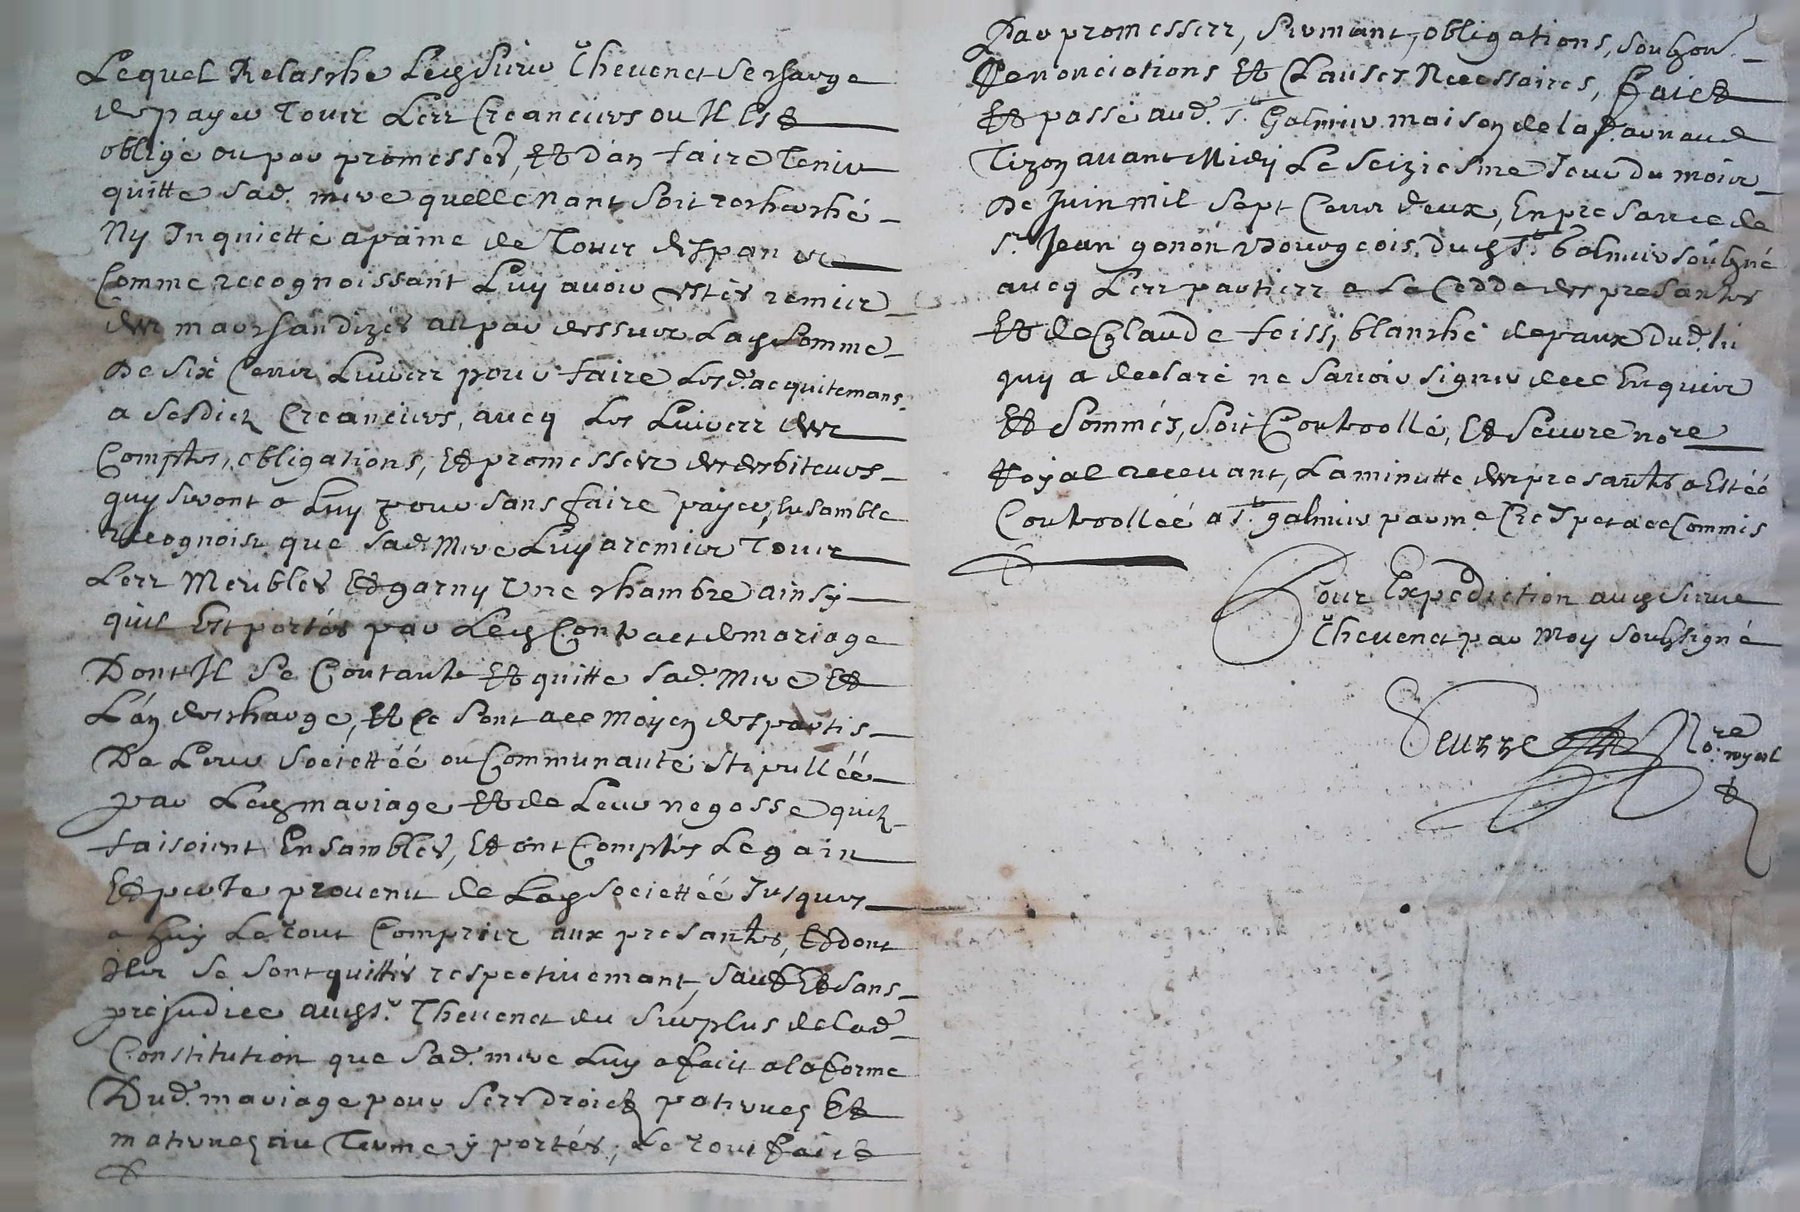 Lequel Relasche Led. Sieur Thevenet se charge
de payer Tour Lerr Creanciers ou Il Est
obligé ou par promesses, Et d'an faire Tenir
quitte Sad. mere quelle nant soit recherché
Ny Inquietté a paine de Tour despan
Comme recognoissant Luy avoir estés remier
der marchandizes au par dessur Lad. Somme
De Six Cenr Livrer pour faire Lesd. acquitemans
a Sesdictz Creanciers, avecq Les Livrerr der
Comptes, obligations, Et promesser des debiteurs
quy seront a Luy pour sans faire payer, Ensamble
recognoist que Sad. Mere Luy a remier Tour
Lerr Meubles Et garny Une chambre ainsy
quil Est portés par Led. Contract de mariage
Dont Il Se Contante Et quitte Sad. Mere Et
L'an descharge, Et Ce Sont a ce Moyen despartis
De Leur Societtéé ou Communauté stipulléé
par Led. mariage Et de Leur negosse quilz
faisoient Ensambles, Et ont Comptés Le gain
Et perte provenu de Lad. Societtéé Jusques
a huy Le Tout Comprier aux presantes, Et dont
Iler Se Sont quittés respectivemant, Sauf Et Sans
prejudice aud. Sr. Thevenet du Surplus de lad.
Constitution que Sad. mere Luy a faict a la forme
Dud. mariage pour Serr droictz paternes Et
maternes au Terme y portés, Le Tout faict
Par promesserr, Sermant, obligations,
Renonciations Et Clauses Necessaires, Faict
Et passé aud. St. Galmier maison de la d. arnaud
Tizon avant Midy Le Seiziesme Jour du moir
De Juin mil Sept Cenr deux, En presance de
Sr. Jean gonon Bourgeois dud. St. Galmier soubzné
avecq Lerr partierr a La Cedde des presantes
Et de Claude feissi, blanché depaux Dud. li
quy a declaré ne Savoir signer de ce Enquier
Et Sommés, Soit Controllé, Et Seuvre nore
Royal recevant, La minutte der presantes a Estéé
Controlléé a St. galmier par me Crespet a ce Commis
Pour Expediction aud. Sieur
Thevenet par Moy Soubzsigné
Seuvre Nore. royal